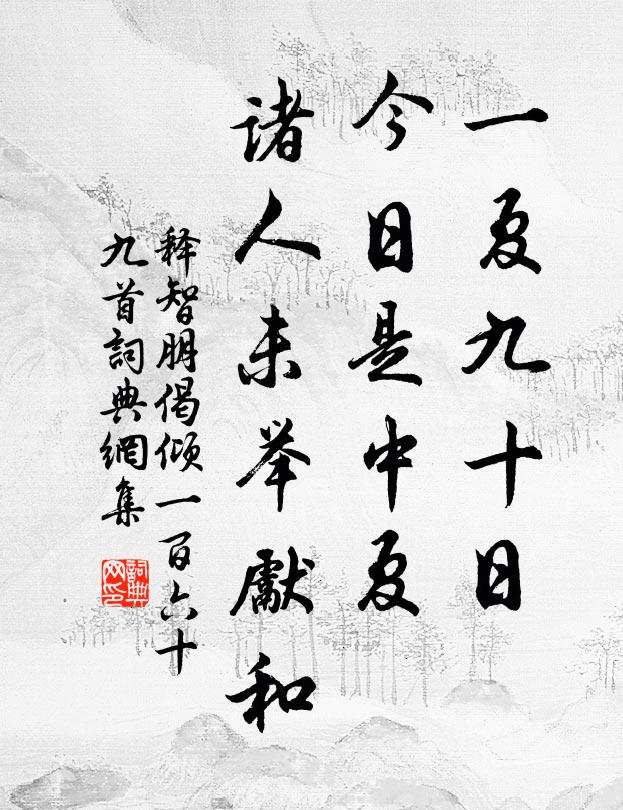 一夏九十日
今日是中夏
诸人未举獻和
释智朋偈倾一百六十
九首詞典網集
詞典网印